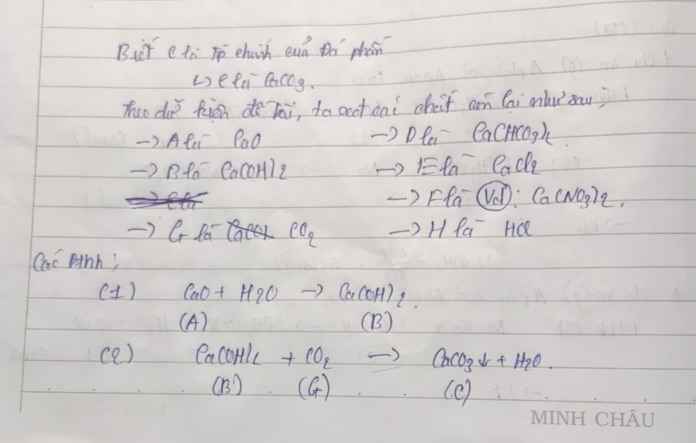 Biết C là tp chính của Đá phấn
↳ C là CaCO3.
Theo dữ kiện đề bài, ta có các chất còn lại như sau:
→ A là CaO → D là Ca(HCO3)2
→ B là Ca(OH)2 → E là CaCl2
→ C là → F là : Ca(NO3)2.
→ G là CO2 → H là HCl
Các ptnh:
(1) CaO + H2O → Ca(OH)2.
(A) (B)
(2) Ca(OH)2 + CO2 → CaCO3↓ + H2O.
(B) (G) (C)
MINH CHÂU